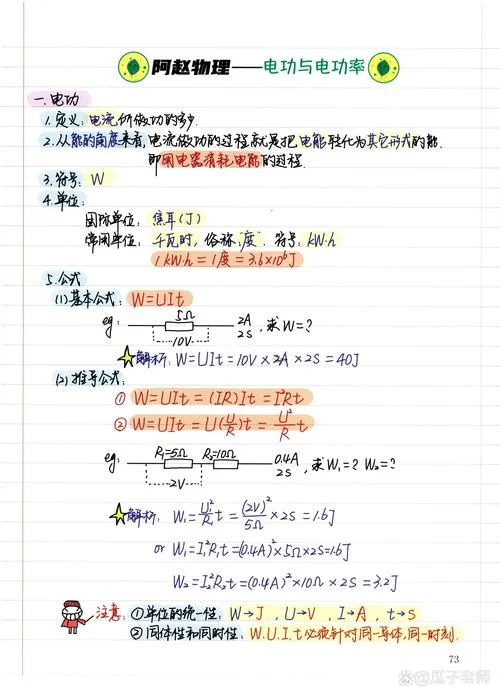 阿赵物理——电功与电功率
一.电功
1.定义:电流所做功的多少.
2.从能的角度来看,电流做功的过程就是把电能转化为其它形式的能.
即用电器消耗电能的过程.
3.符号:W
4.单位:
国际单位:焦耳(J)
常用单位:千瓦时,俗称"度".符号:kW·h
1kW·h=1度=3.6×10⁶J
5.公式
(1)基本公式:W=UIt
eg: 5Ω 10V 2A 2S,求W=?
解析:W=UIt=10V×2A×2S=40J
(2)推导公式:
① W=UIt=(IR)It=I²Rt
② W=UIt=U(U/R)t=U²/R t
eg: R₁=5Ω R₂=10Ω 2V 0.4A 2S,求W₁=? W₂=?
解析:W₁=U₁²/R₁ t=(2V)²/5Ω×2S=1.6J
or W₁=I₁²R₁t=(0.4A)²×5Ω×2S=1.6J
W₂=I₂²R₂t=(0.4A)²×10Ω×2S=3.2J
注意:①单位的统一性:W→J,U→V,I→A,t→S
②同体性和同时性:W.U.I.t必须针对同一导体,同一时刻.
73
@瓜子老师